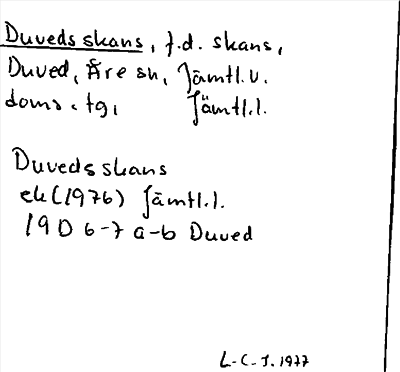 Duveds skans, f.d. skans,
Duved, Åre sn, Jämtl.v.
doms. tg, Jämtl.l.
Duveds skans
ek (1976) Jämtl.l.
19D 6-7 a-b Duved
L-C-J. 1977